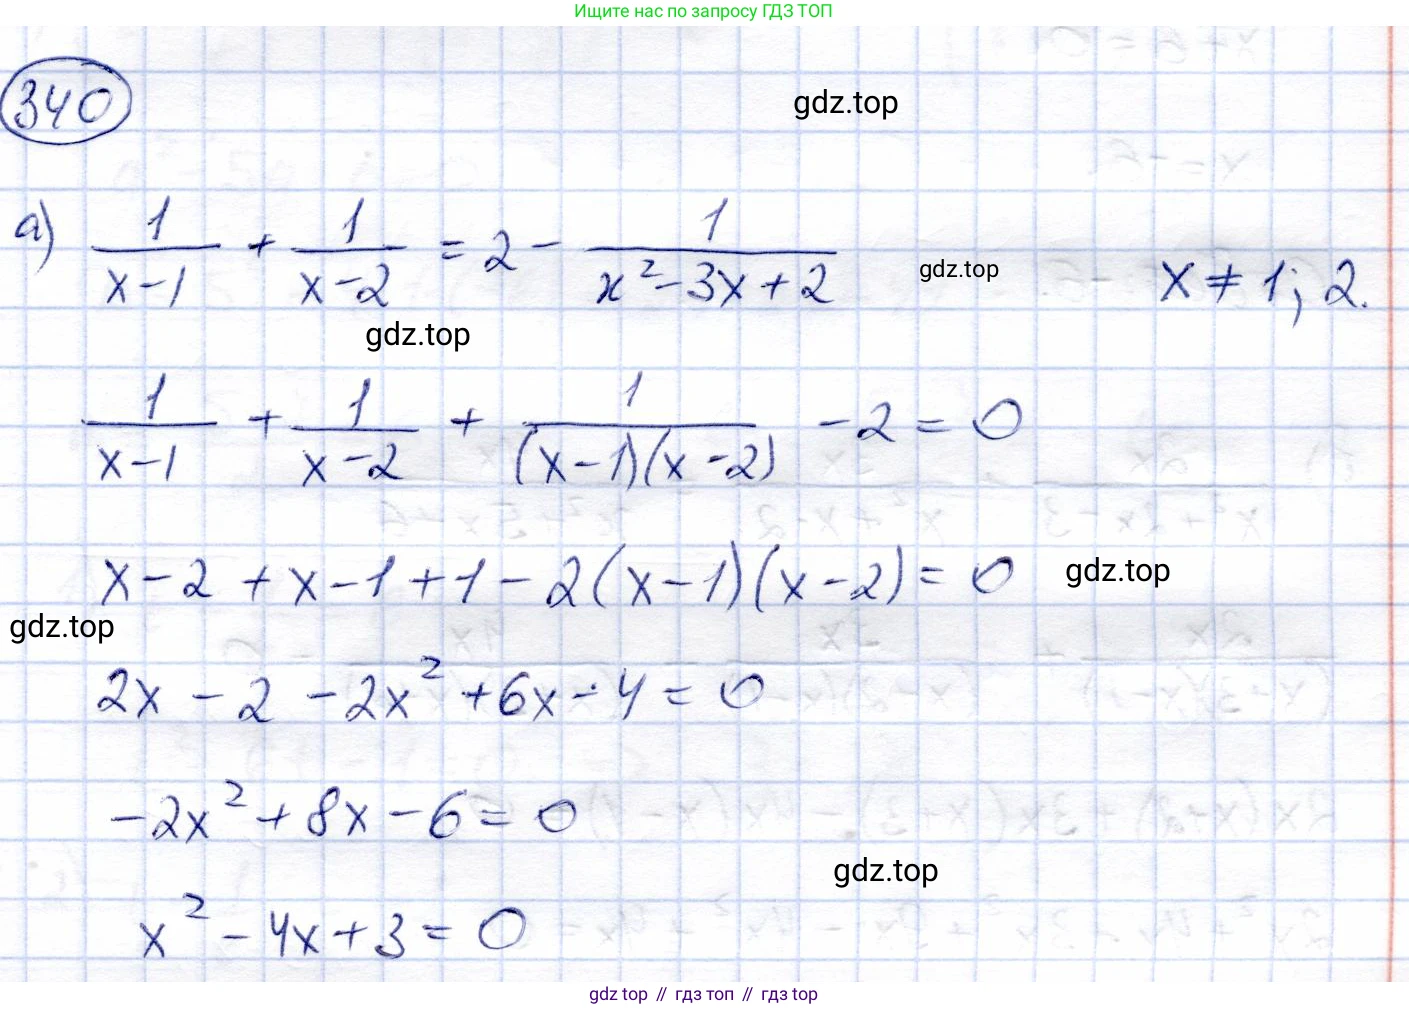 Ищите нас по запросу ГДЗ ТОП
340
gdz.top
а) 1/(x-1) + 1/(x-2) = 2 - 1/(x²-3x+2) gdz.top x ≠ 1; 2.
gdz.top
1/(x-1) + 1/(x-2) + 1/((x-1)(x-2)) - 2 = 0
x-2+x-1+1-2(x-1)(x-2)=0 gdz.top
gdz.top
2x-2-2x²+6x-4=0
-2x²+8x-6=0
gdz.top
x²-4x+3=0
gdz top // гдз топ // гдз top